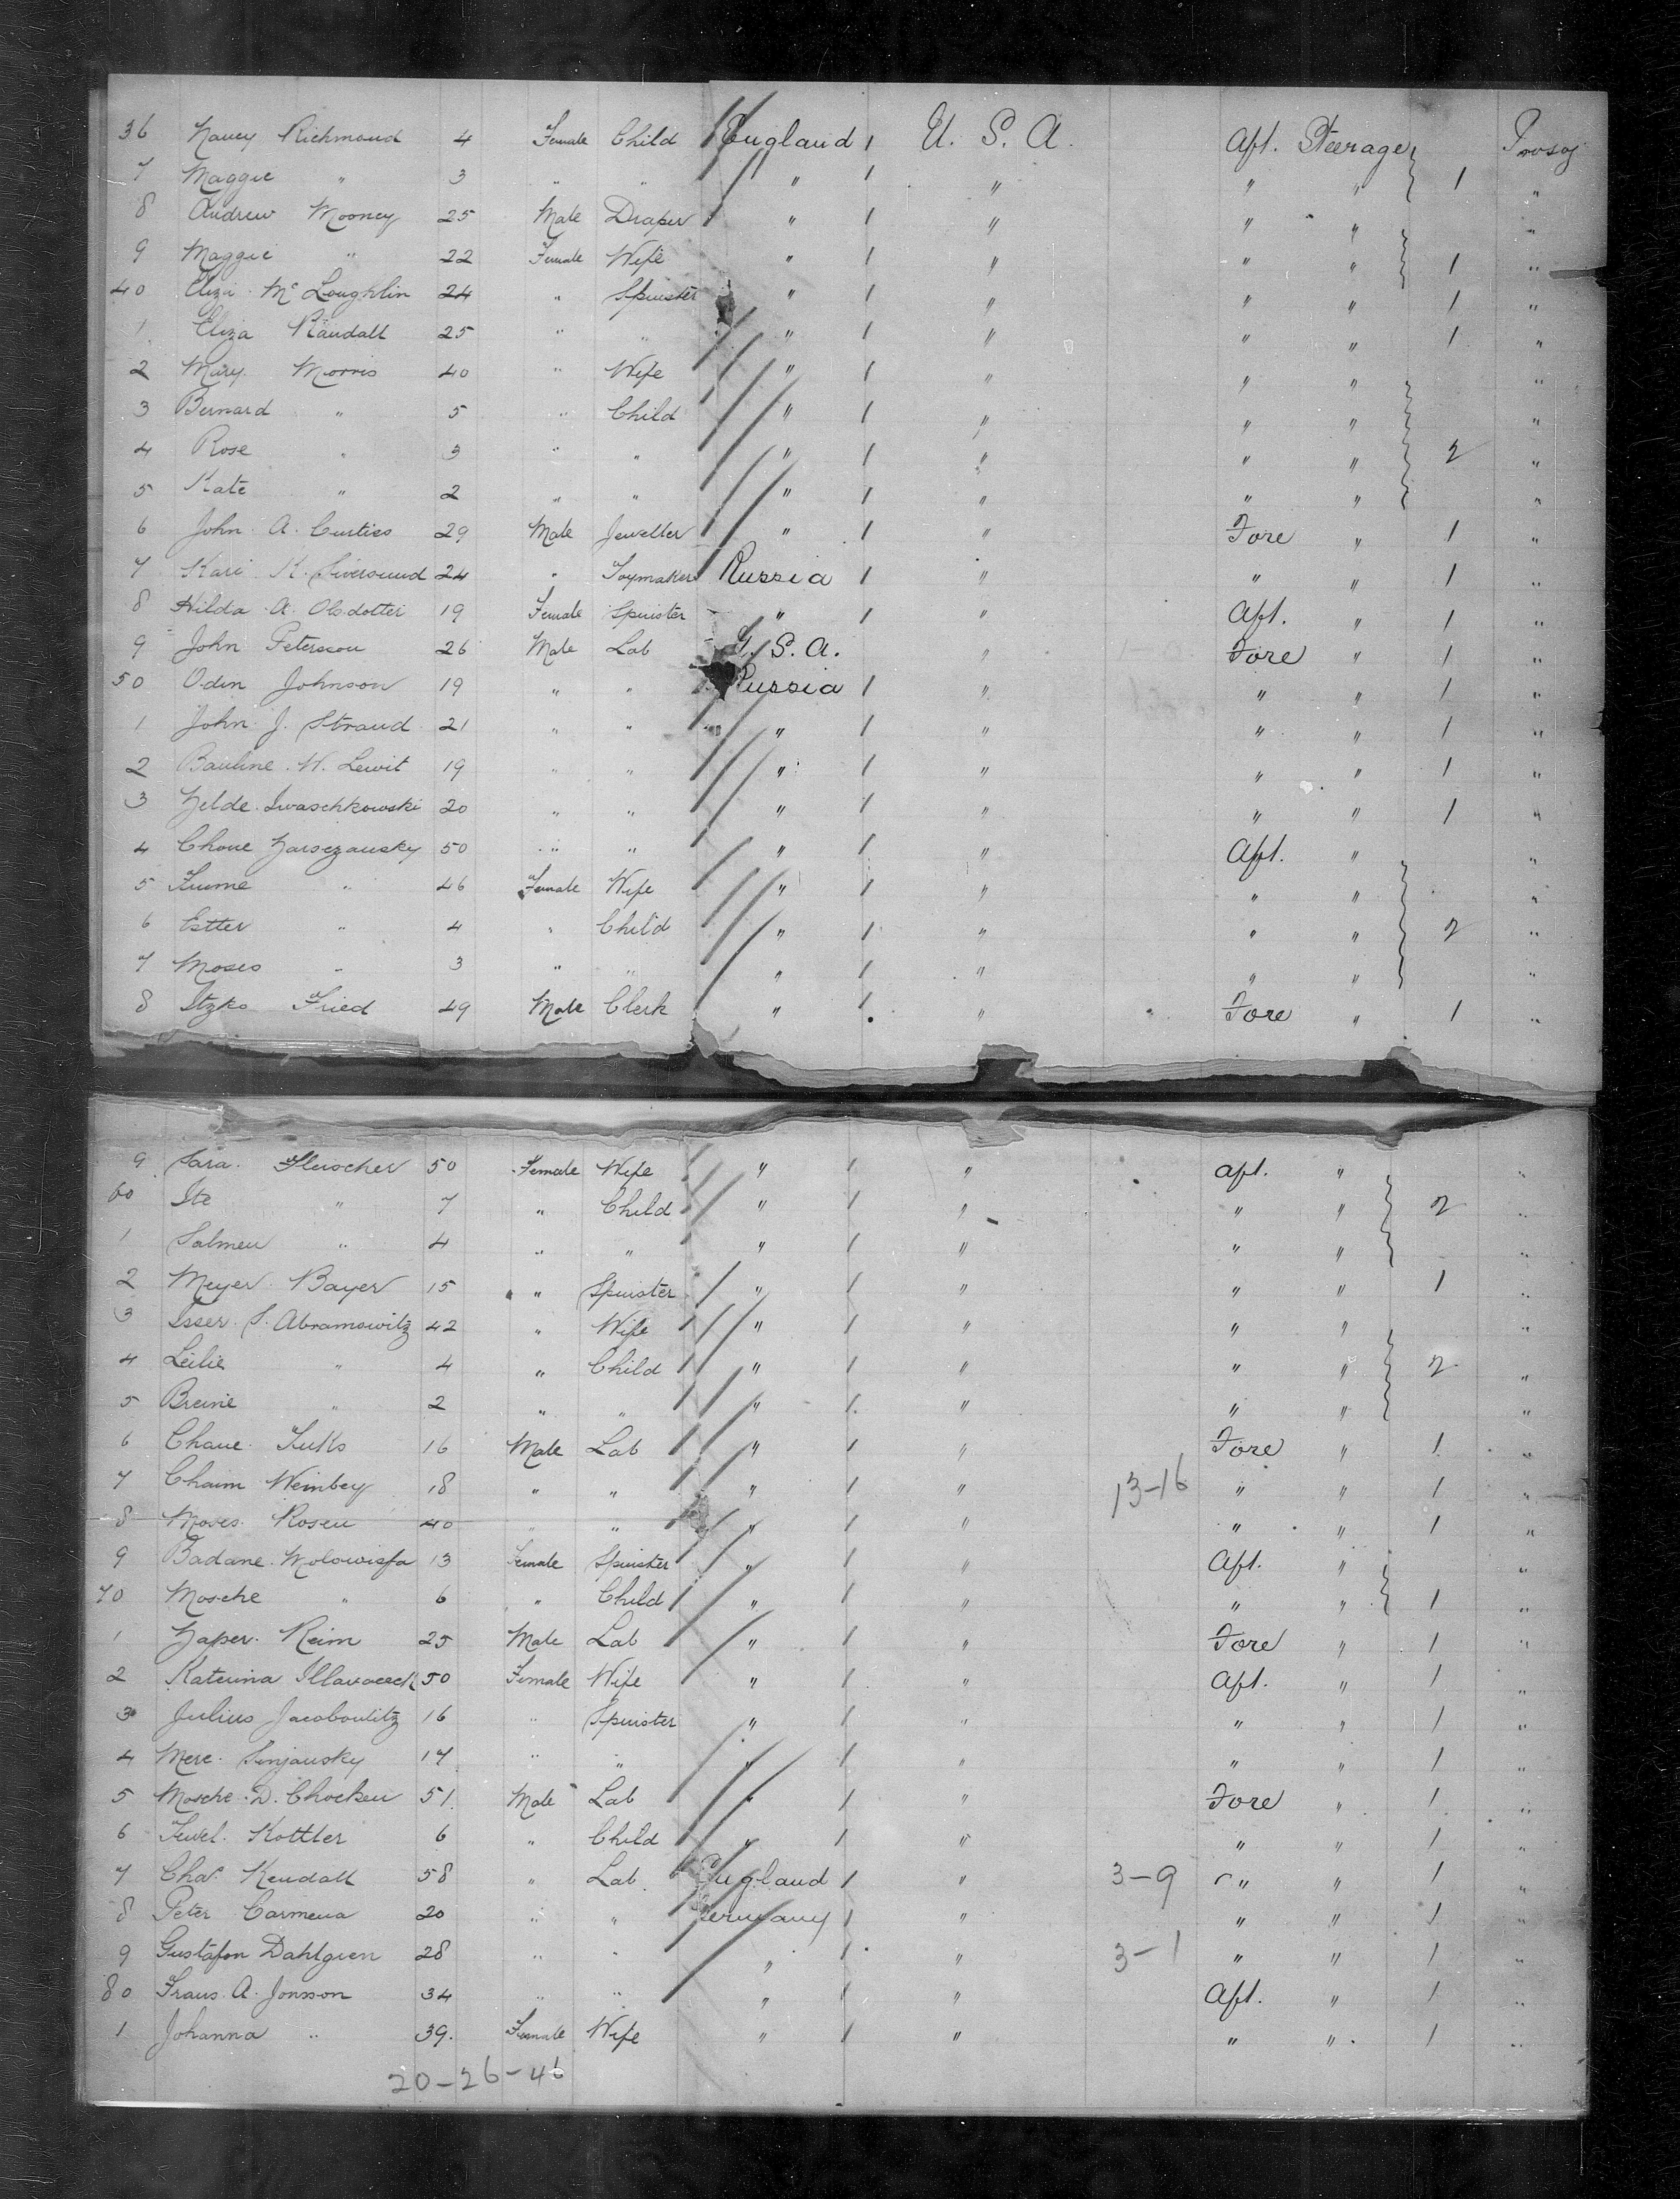 36 Nancy Richmond 4 Female Child England 1 U. S. A. Aft. Steerage
7 Maggie " 3 " " " 1 " " " 1 "
8 Andrew Mooney 25 Male Draper " 1 " " " "
9 Maggie " 22 Female Wife " 1 " " " 1 "
40 Eliza McLoughlin 24 " Spinster " 1 " " " 1 "
1 Eliza Randall 25 " " " 1 " " " 1 "
2 Mary Morris 40 " Wife " 1 " " " "
3 Bernard " 5 " Child " 1 " " " "
4 Rose " 3 " " " 1 " " " 2 "
5 Kate " 2 " " " 1 " " " "
6 John A. Curtiss 29 Male Jeweller " 1 " Fore " 1 "
7 Kari K. Siversund 24 " Toymaker Russia 1 " " " 1 "
8 Hilda A. Olsdotter 19 Female Spinster " 1 " Aft. " 1 "
9 John Petersson 26 Male Lab U. S. A. " Fore " 1 "
50 Odin Johnson 19 " " Russia 1 " " " 1 "
1 John J. Straud 21 " " " 1 " " " 1 "
2 Bauline W. Lewit 19 " " " 1 " " " 1 "
3 Zelde Iwaschkowski 20 " " " 1 " " " 1 "
4 Chone 50 " " " 1 " Aft. " "
5 " 46 Female Wife " 1 " " " "
6 Estter " 4 " Child " 1 " " " 2 "
7 Moses " 3 " " " 1 " " " "
8 Itzko Fried 49 Male Clerk " " Fore " 1 "
9 Sara Fleischer 50 Female Wife " 1 " Aft. " "
60 Ite " 7 " Child " 1 " " " 2 "
1 Salmen " 4 " " " 1 " " " "
2 Meyer Bayer 15 " Spinster " 1 " " " 1 "
3 Isser S. Abramowitz 42 " Wife " 1 " " " "
4 Leilie " 4 " Child " 1 " " " 2 "
5 Breine " 2 " " " 1 " " " "
6 Chane 16 Male Lab " 1 " Fore " 1 "
7 Chaim Weinbey 18 " " " 1 " 13-16 " " 1 "
8 Moses Rosen 40 " " " 1 " " " 1 "
9 Badane Molowisfa 13 Female Spinster " 1 " Aft. " "
70 Mosche " 6 " Child " 1 " " " 1 "
1 Zaper Reim 25 Male Lab " 1 " Fore " 1 "
2 Katerina 50 Female Wife " 1 " Aft. " 1 "
3 Julius Jacobowitz 16 " Spinster " 1 " " " 1 "
4 Mere Sinjansky 17 " " " 1 " " " 1 "
5 Mosche D. Chocken 51 Male Lab " 1 " Fore " 1 "
6 Kottler 6 " Child " 1 " " " 1 "
7 Chas Kendall 58 " Lab England 1 " 3-9 " " 1 "
8 Peter Carmena 20 " " Germany 1 " " " 1 "
9 Gustafon Dahlgren 28 " " " 1 " 3-1 " " 1 "
80 Frans A. Jonsson 34 " " " 1 " Aft. " 1 "
1 Johanna " 39. Female Wife " 1 " " " 1 "
20-26-46